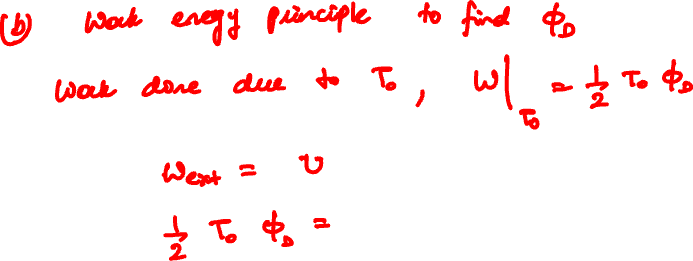 (b) Work enegy principle to find ϕ_D
Work done due to T_0, W|_{T_0} = 1/2 T_0 ϕ_D
W_ext = U
1/2 T_0 ϕ_D =